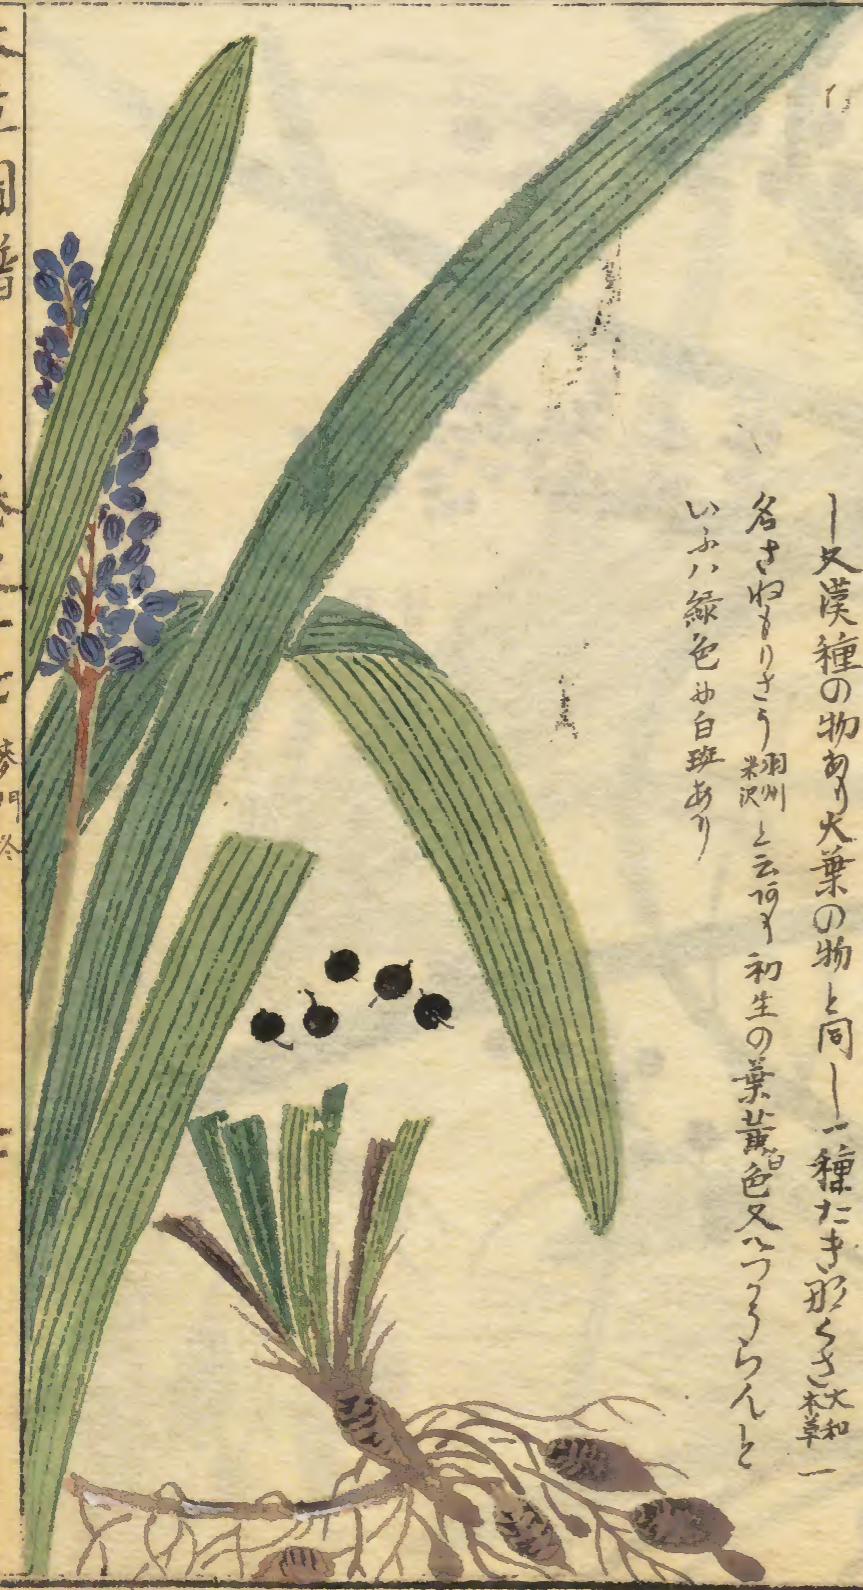 し又漢種の物あり大葉の物と同し一種たき那くさ大和本草一
名さねもりさう羽州米沢と云あり初生の葉黄白色又ハつるらんと
いふハ緑色に白斑あり
圖譜
麥門冬